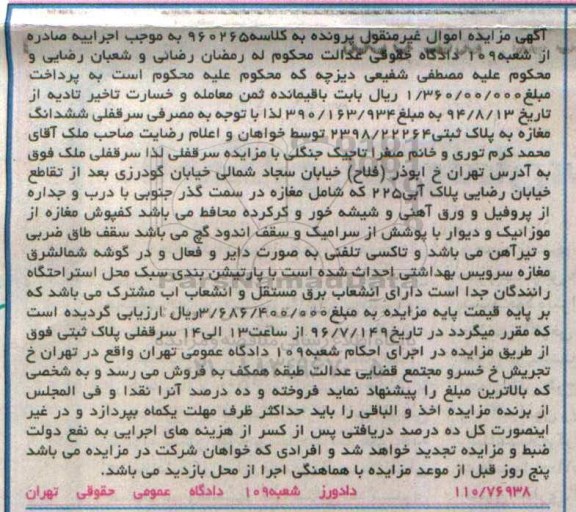 آگهی مزایده اموال غیرمنقول پرونده به کلاسه۹۶۰۲۶۵ به موجب اجراییه صادره
از شعبه۱۰۹ دادگاه حقوقی عدالت محکوم له رمضان رضائی و شعبان رضایی و
محکوم علیه مصطفی شفیعی دیزچه که محکوم علیه محکوم است به پرداخت
مبلغ۱/۳۶۰/۰۰/۰۰۰ ریال بابت باقیمانده ثمن معامله و خسارت تاخیر تادیه از
تاریخ ۹۴/۸/۱۳ به مبلغ۳۹۰/۱۶۳/۹۳۴ لذا با توجه به مصرفی سرقفلی ششدانگ
مغازه به پلاک ثبتی۲۳۹۸/۲۲۲۶۴ توسط خواهان و اعلام رضایت صاحب ملک آقای
محمد کرم توری و خانم صغرا تاجیک جنگلی با مزایده سرقفلی لذا سرقفلی ملک فوق
به آدرس تهران خ ابوذر (فلاح) خیابان سجاد شمالی خیابان گودرزی بعد از تقاطع
خیابان رضایی پلاک آبی۲۲۵ که شامل مغازه در سمت گذر جنوبی با درب و جداره
از پروفیل و ورق آهنی و شیشه خور و کرکرده محافظ می باشد کفپوش مغازه از
موزائیک و دیوار با پوشش از سرامیک و سقف اندود گچ می باشد سقف طاق ضربی
و تیرآهن می باشد و تاکسی تلفنی به صورت دایر و فعال و در گوشه شمالشرق
مغازه سرویس بهداشتی احداث شده است با پارتیشن بندی سبک محل استراحتگاه
رانندگان جدا است دارای انشعاب برق مستقل و انشعاب اب مشترک می باشد که
بر پایه قیمت پایه مزایده به مبلغ۳/۶۸۶/۴۰۰/۰۰۰ریال ارزیابی گردیده است
که مقرر میگردد در تاریخ۹۶/۷/۱۱۴۹ از ساعت۱۳ الی۱۴ سرقفلی پلاک ثبتی فوق
از طریق مزایده در اجرای احکام شعبه۱۰۹ دادگاه عمومی تهران واقع در تهران خ
تجریش خ خسرو مجتمع قضایی عدالت طبقه همکف به فروش می رسد و به شخصی
که بالاترین مبلغ را پیشنهاد نماید فروخته و ده درصد آنرا نقدا و فی المجلس
از برنده مزایده اخذ و الباقی را باید حداکثر ظرف مهلت یکماه بپردازد و در غیر
اینصورت کل ده درصد دریافتی پس از کسر از هزینه های اجرایی به نفع دولت
ضبط و مزایده تجدید خواهد شد و افرادی که خواهان شرکت در مزایده می باشد
پنج روز قبل از موعد مزایده با هماهنگی اجرا از محل بازدید می باشد.
۱۱۰/۷۶۹۳۸ دادورز شعبه۱۰۹ دادگاه عمومی حقوقی تهران